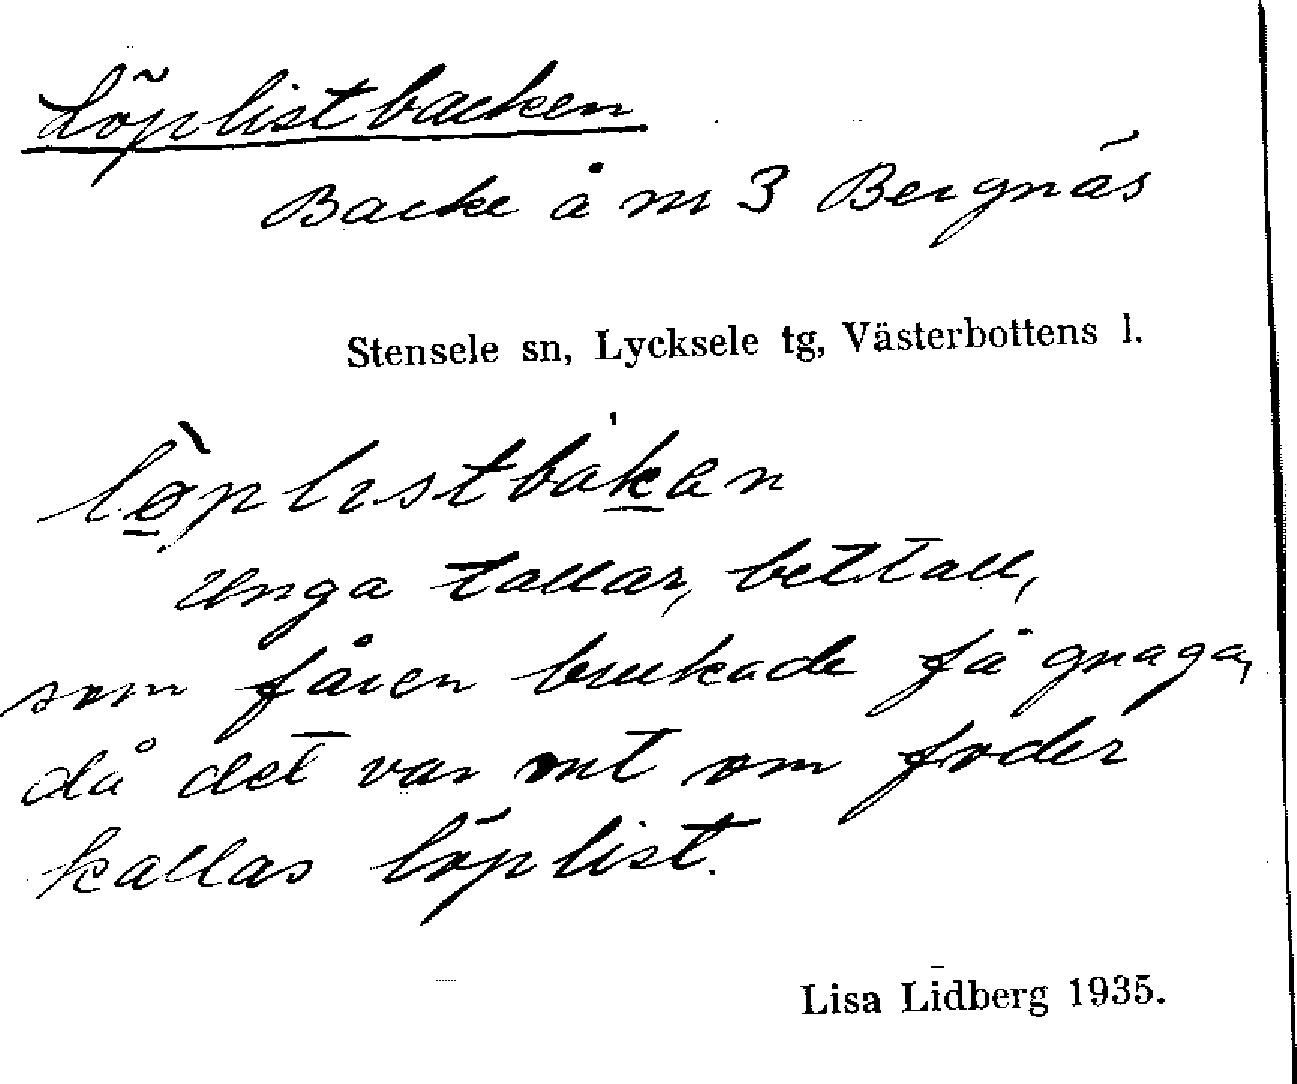 Löplistbacken
Backe å nr 3 Bergnäs
Stensele sn, Lycksele tg, Västerbottens l.
lø̀plıstbákan
Unga tallar, bettall,
som fåren brukade få gnaga,
då det var ont om foder
kallas löplist.
Lisa Lidberg 1935.